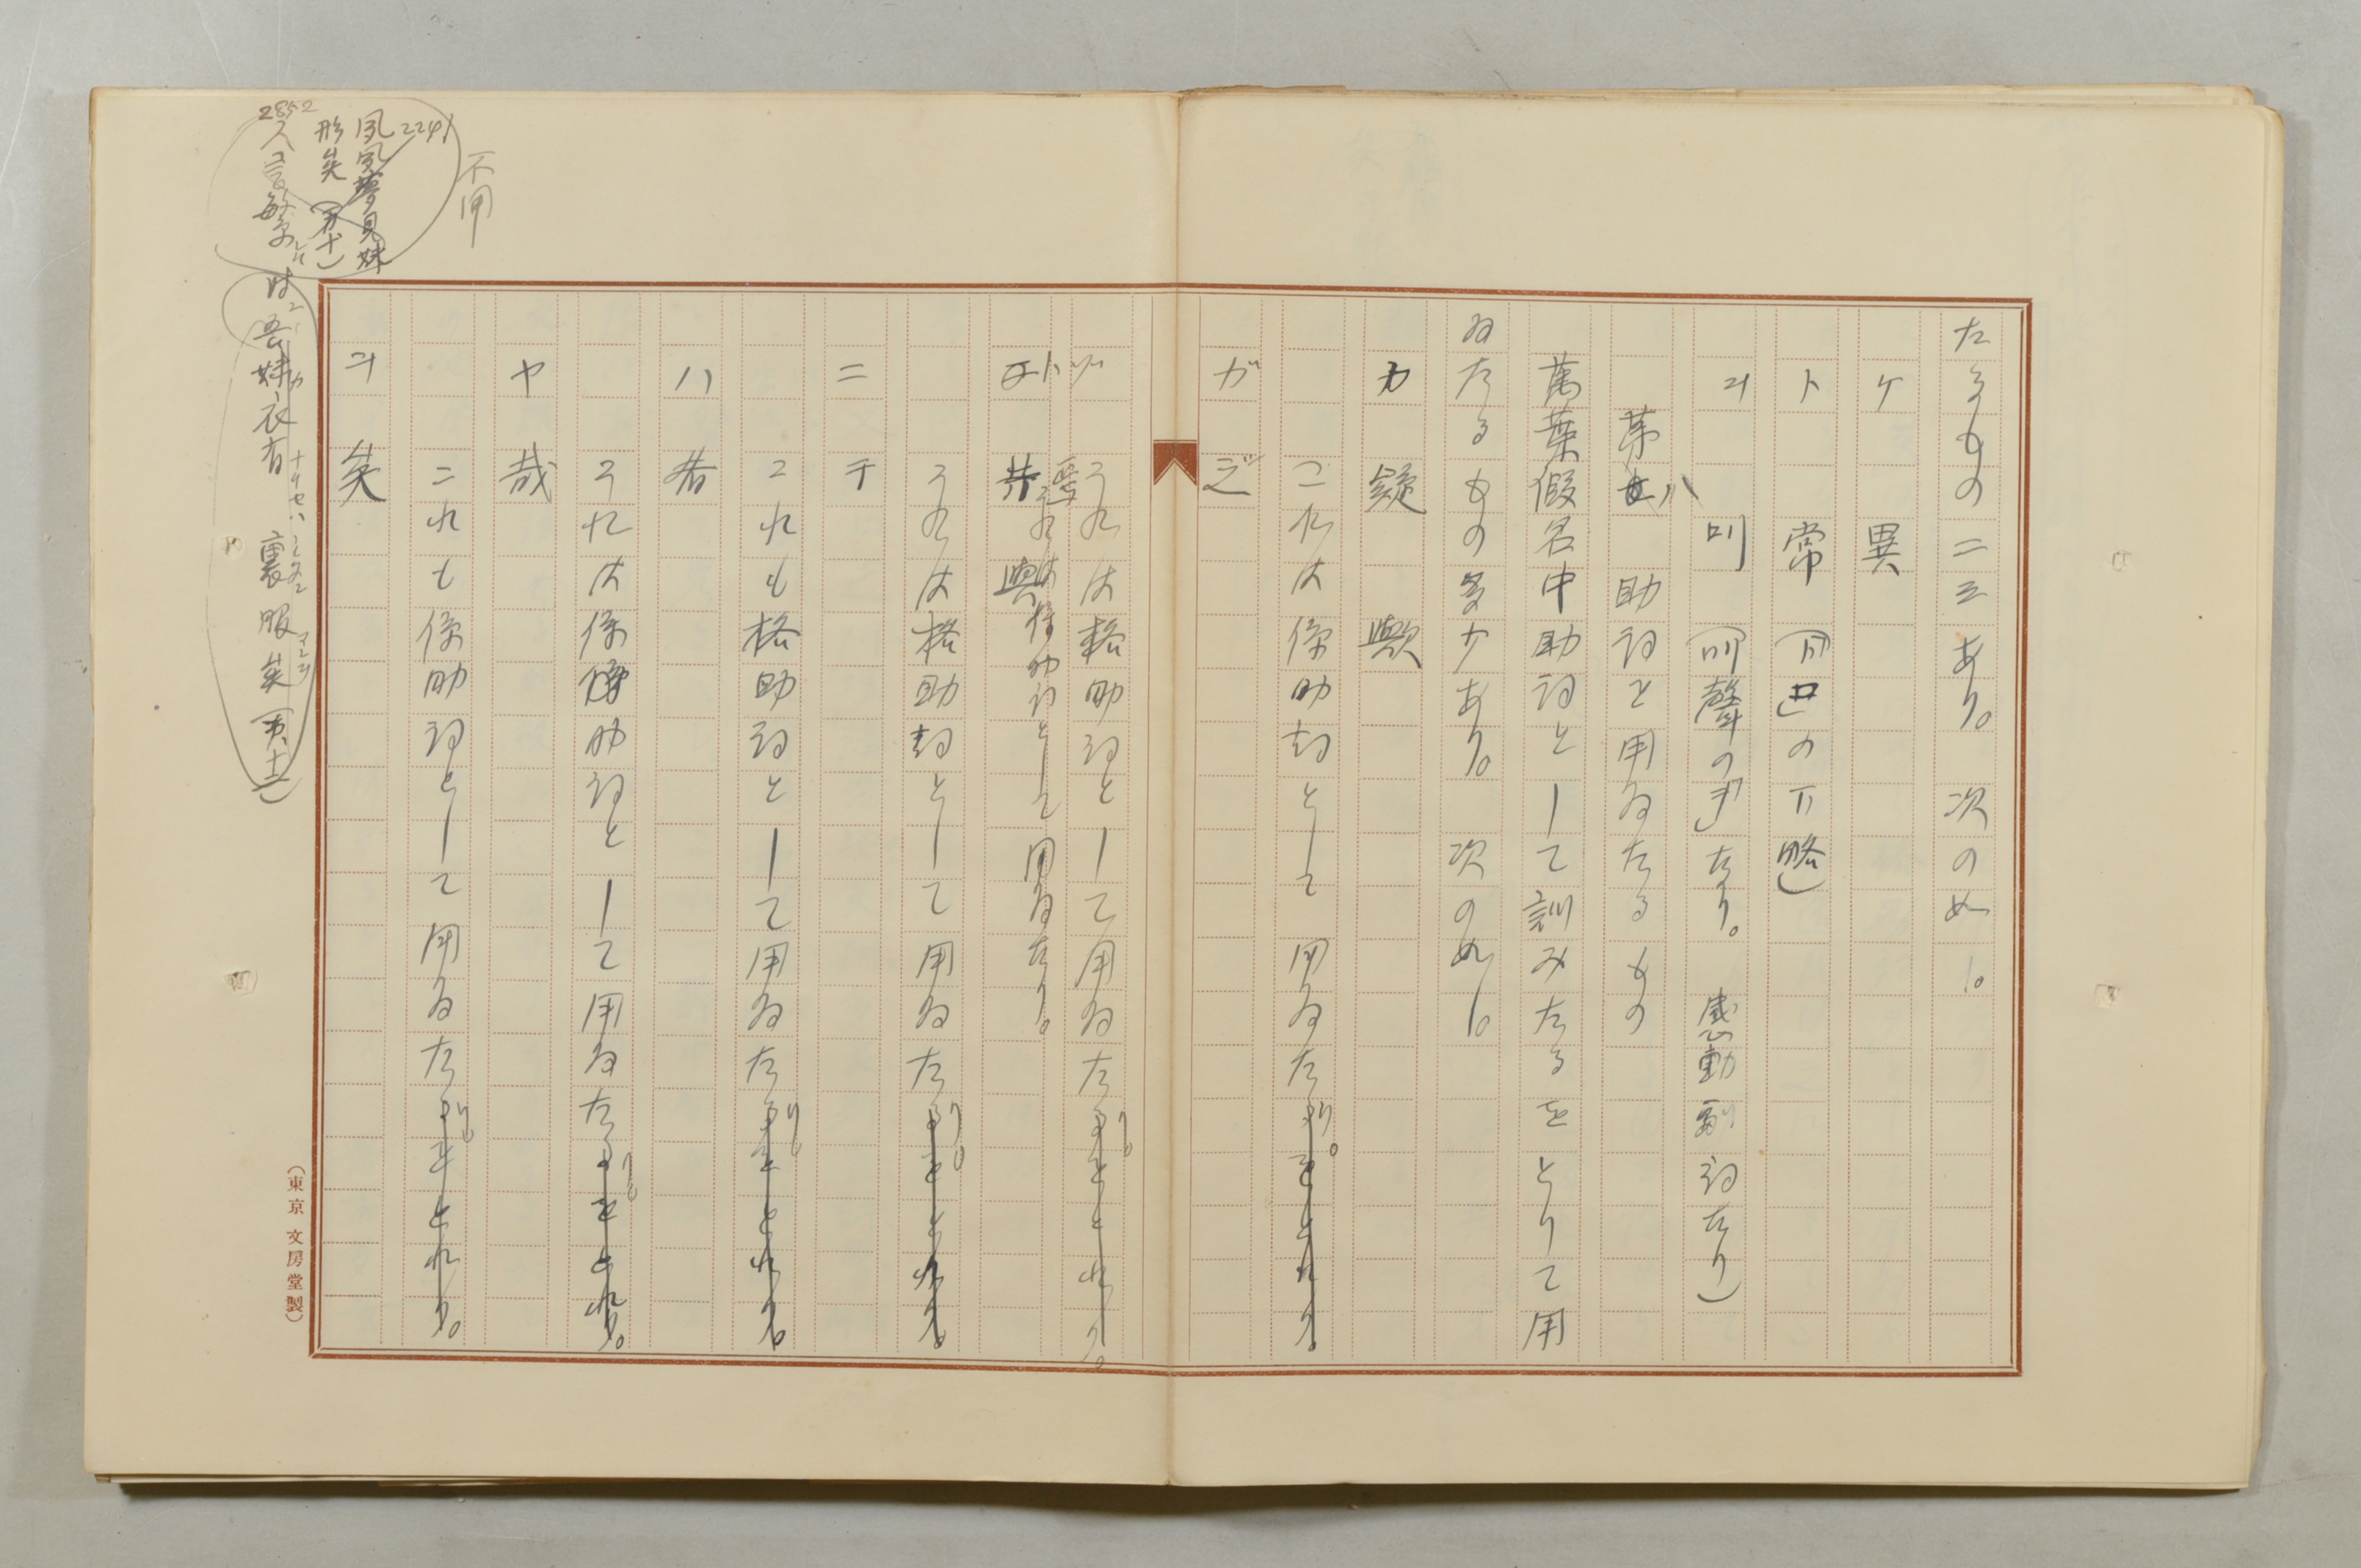 たるもの二三あり。次の如し。
ケ 異
ト 常 (「月」の下略)
ヨ 叫 (叫聲の「ヨ」たり。感動副詞たり)
第八 助詞と用ゐたるもの
萬葉假名中助詞として訓みたるをとりて用
ゐたるもの多少あり。次の如し。
カ 疑 歟
これは係助詞として用ゐたり。
ガ 之
これは格助詞として用ゐたり。
ト 共 與
これは格助詞として用ゐたり。
これは格助詞として用ゐたり。
ニ 于
これも格助詞として用ゐたり。
ハ 者
これは係助詞として用ゐたり。
ヤ 哉
これも係助詞として用ゐたり。
ヲ 矣
不用
2241
夢見妹
形矣
2852
人言繁
時
吾妹衣有
裏服矣
(東京 文房堂製)